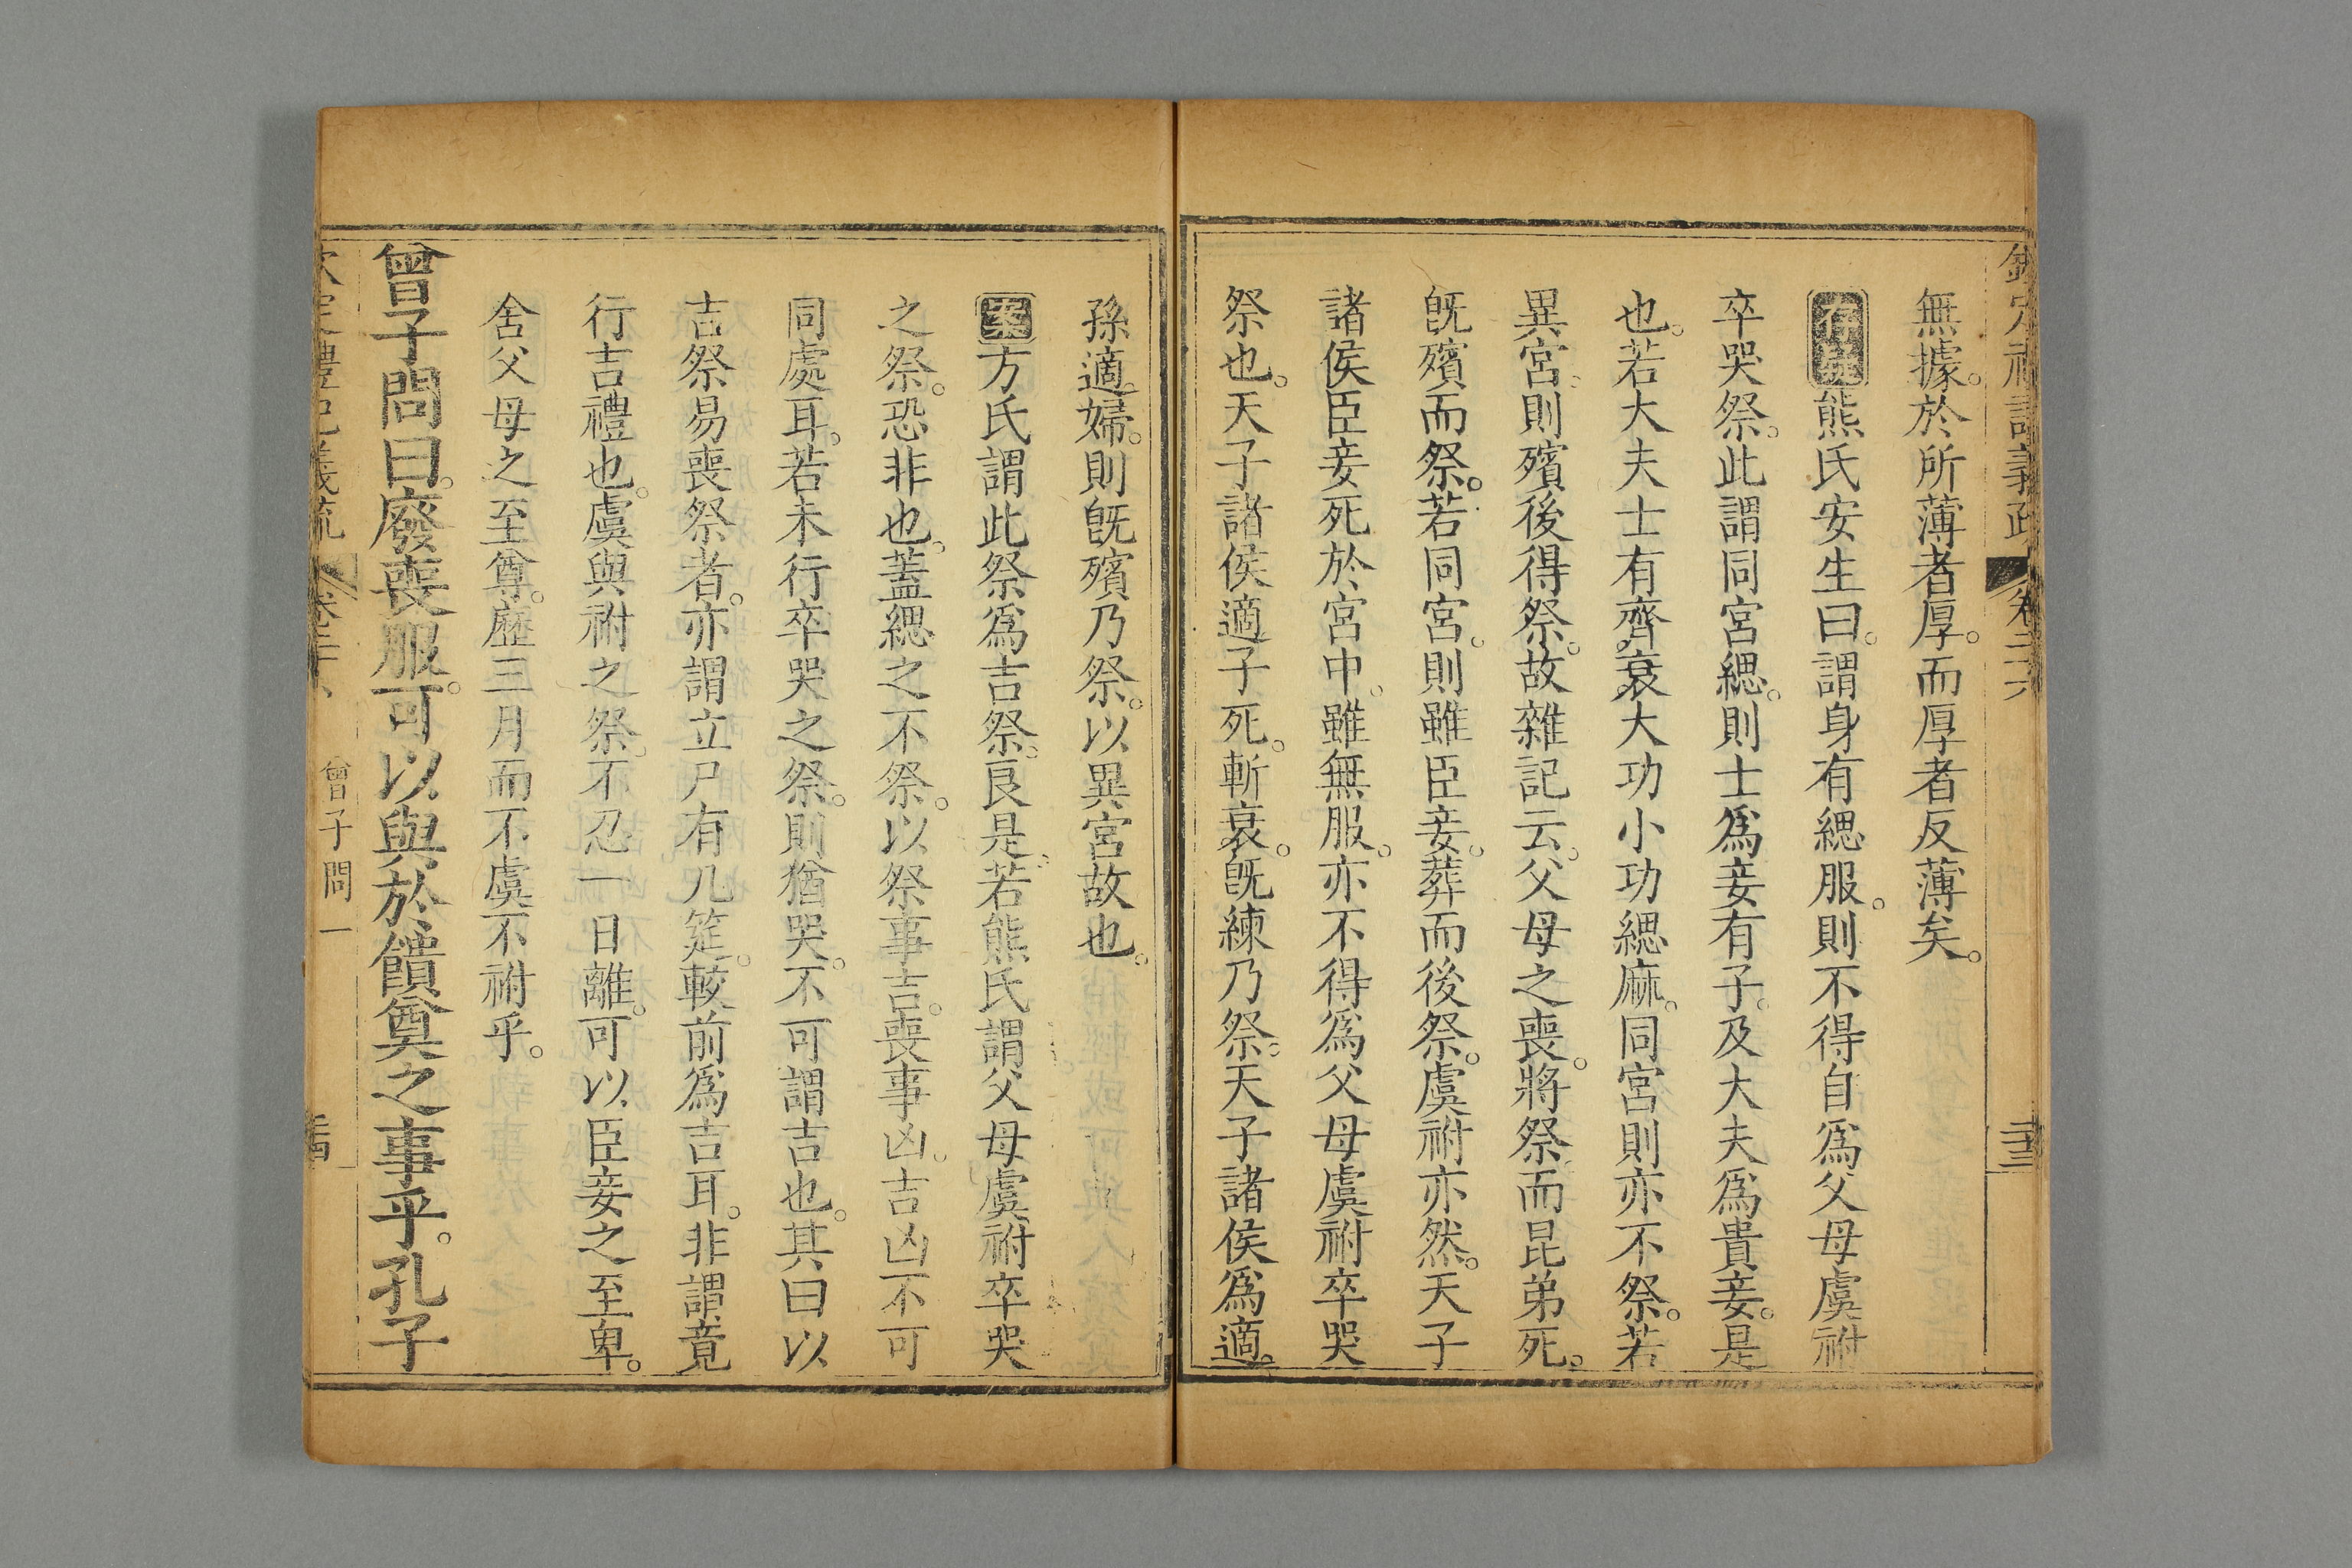 欽定禮記義疏 卷二十六 三十三
無據。於所薄者厚。而厚者反薄矣。
存異熊氏安生曰。謂身有緦服。則不得自爲父母虞祔
卒哭祭。此謂同宮緦。則士爲妾有子。及大夫爲貴妾。是
也。若大夫士有齊衰大功小功緦麻。同宮則亦不祭。若
異宮。則殯後得祭。故雜記云。父母之喪。將祭。而昆弟死。
旣殯而祭。若同宮。則雖臣妾。葬而後祭。虞祔亦然。天子
諸侯臣妾死於宮中。雖無服。亦不得爲父母虞祔卒哭
祭也。天子諸侯適子死。斬衰。旣練乃祭。天子諸侯爲適。
孫適婦。則旣殯乃祭。以異宮故也。
案方氏謂此祭爲吉祭。良是。若熊氏謂父母虞祔卒哭
之祭。恐非也。蓋緦之不祭。以祭事吉。喪事凶。吉凶不可
同處耳。若未行卒哭之祭。則猶哭。不可謂吉也。其曰以
吉祭易喪祭者。亦謂立尸有几筵。較前爲吉耳。非謂竟
行吉禮也。虞與祔之祭。不忍一日離。可以臣妾之至卑。
舍父母之至尊。歷三月而不虞不祔乎。
曾子問曰。廢喪服。可以與於饋奠之事乎。孔子
欽定禮記義疏 卷二十六 曾子問一 三十四